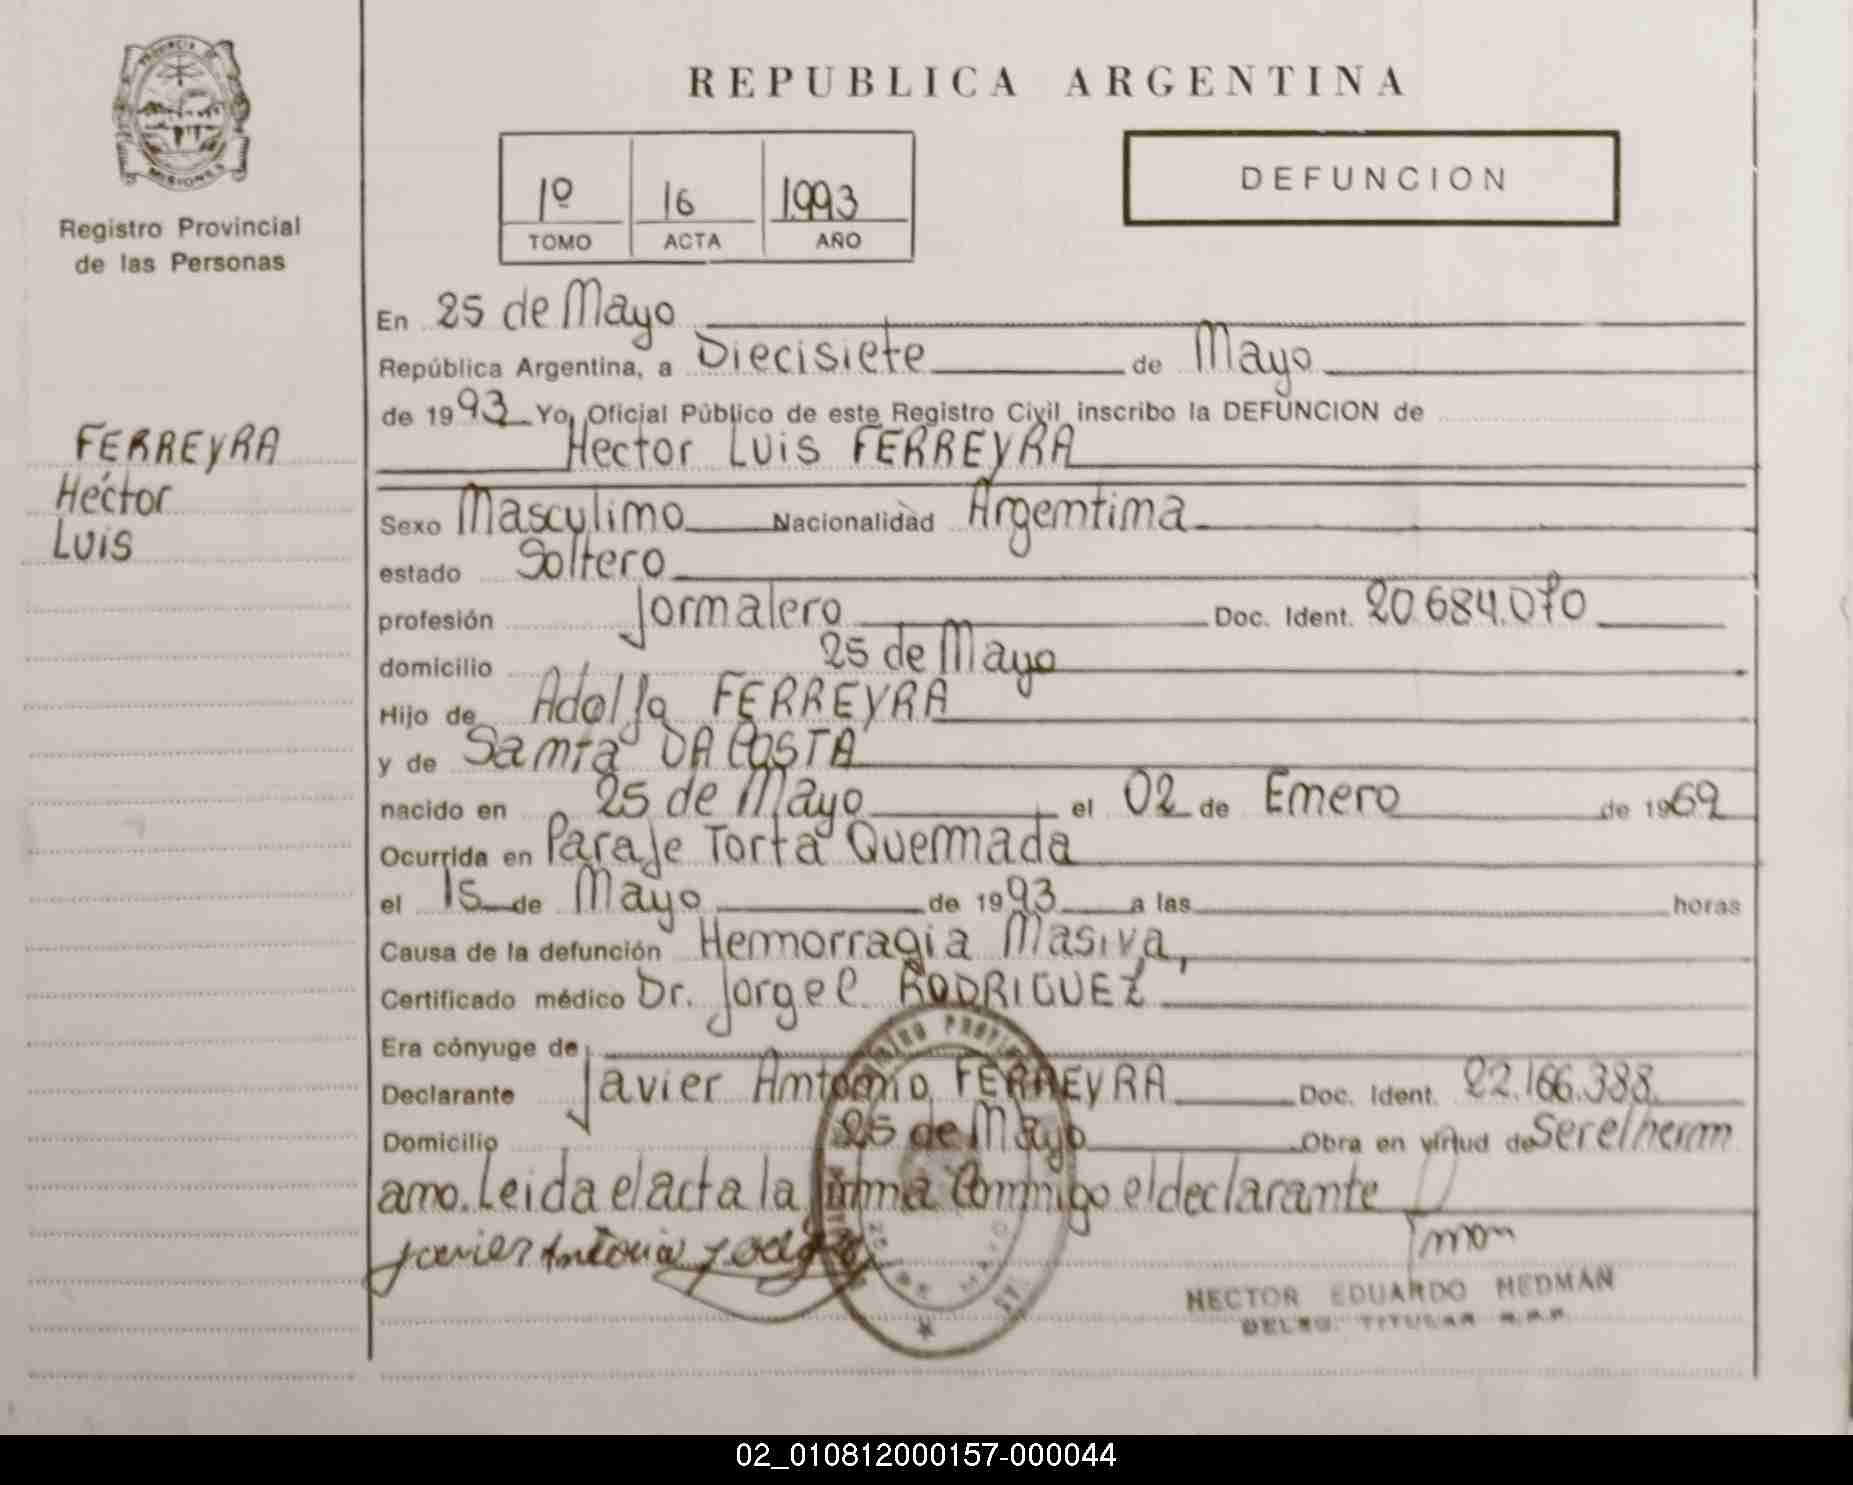 PROVINCIA DE
MISIONES
Registro Provincial
de las Personas
FERREYRA
Héctor
Luis
REPUBLICA ARGENTINA
1º 16 1993
TOMO ACTA AÑO
DEFUNCION
En 25 de Mayo
República Argentina, a Diecisiete de Mayo
de 1993 Yo, Oficial Público de este Registro Civil inscribo la DEFUNCION de
Hector Luis FERREYRA
Sexo Masculino Nacionalidad Argentina
estado Soltero
profesión Jornalero Doc. Ident. 20.684.070
domicilio 25 de Mayo
Hijo de Adolfo FERREYRA
y de Santa DA COSTA
nacido en 25 de Mayo el 02 de Enero de 1969
Ocurrida en Paraje Torta Quemada
el 15 de Mayo de 1993 a las horas
Causa de la defunción Hemorragia Masiva,
Certificado médico Dr. Jorge C. RODRIGUEZ
Era cónyuge de
Declarante Javier Antonio FERREYRA Doc. Ident. 22.166.388
Domicilio 25 de Mayo Obra en virtud de Ser el herm
ano. Leida el acta la firma Conmigo el declarante
Javier Antonio
HECTOR EDUARDO HEDMAN
DELEG. TITULAR R.P.P.
25 DE MAYO
02_010812000157-000044